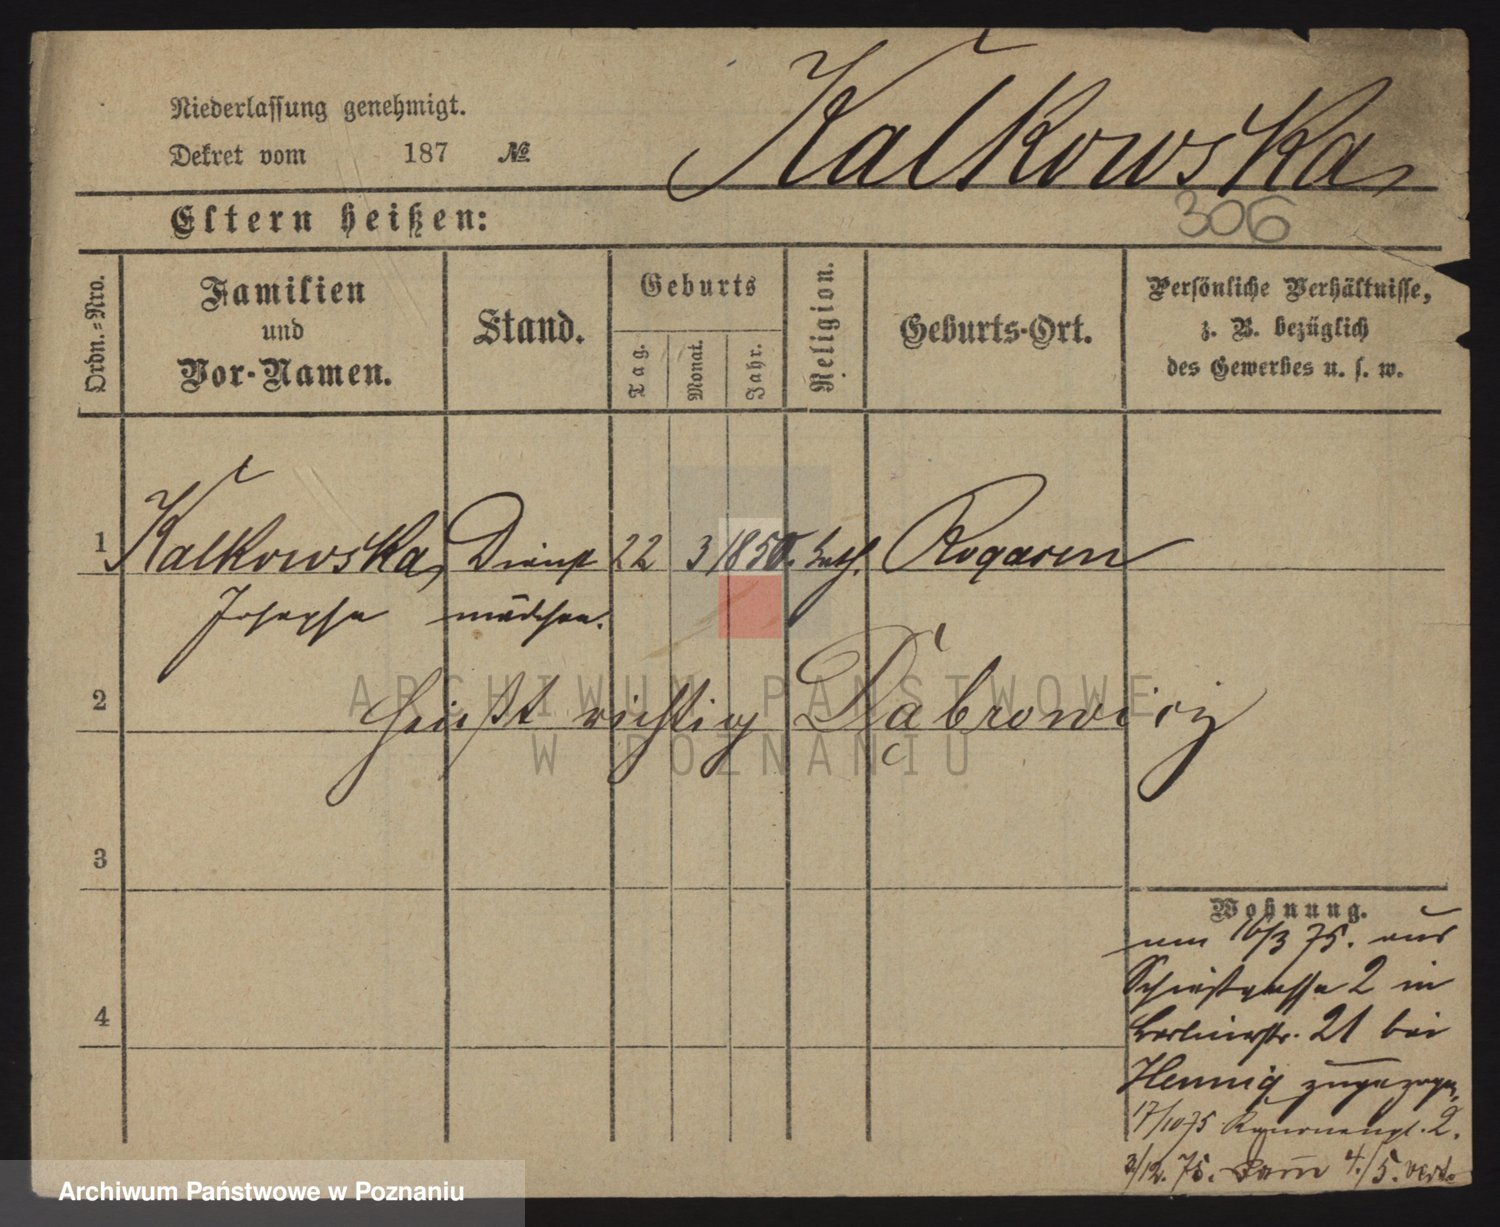 Kalkowska,
Niederlassung genehmigt.
Dekret vom 187 №
306
Eltern heißen:
Ordn.-Nro.
Familien
und
Vor-Namen.
Stand.
Geburts
Tag.
Monat.
Jahr.
Religion.
Geburts-Ort.
Persönliche Verhältnisse,
z. B. bezüglich
des Gewerbes u. s. w.
1 Kalkowska, Dienst 22 3 1850. kath. Rogasen
Josepha mädchen.
2 heißt richtig Dąbrowicz
3
4
Wohnung.
16/3 75. aus
2 in
Berlinerstr. 21 bei
Hennig zugezogen,
17/10 75 2.
3/12. 75. 4./5.
ARCHIWUM PAŃSTWOWE
W POZNANIU
Archiwum Państwowe w Poznaniu